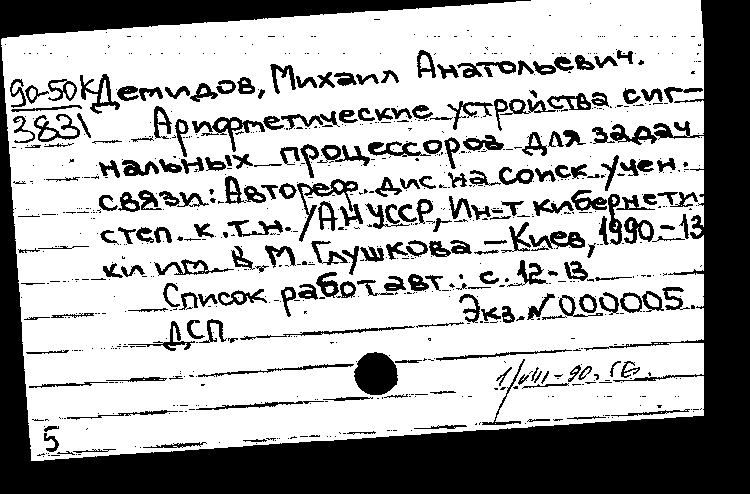 90-50К Демидов, Михаил Анатольевич.
3831 Арифметические устройства сиг-
нальных процессоров для задач
связи: Автореф. дис. на соиск. учен.
степ. к.т.н. /АН УССР, Ин-т кибернети-
ки им. В.М. Глушкова. — Киев, 1990.-13
Список работ авт.: с. 12-13.
Экз. № 000005.
ДСП.
1/VIII-90.
5